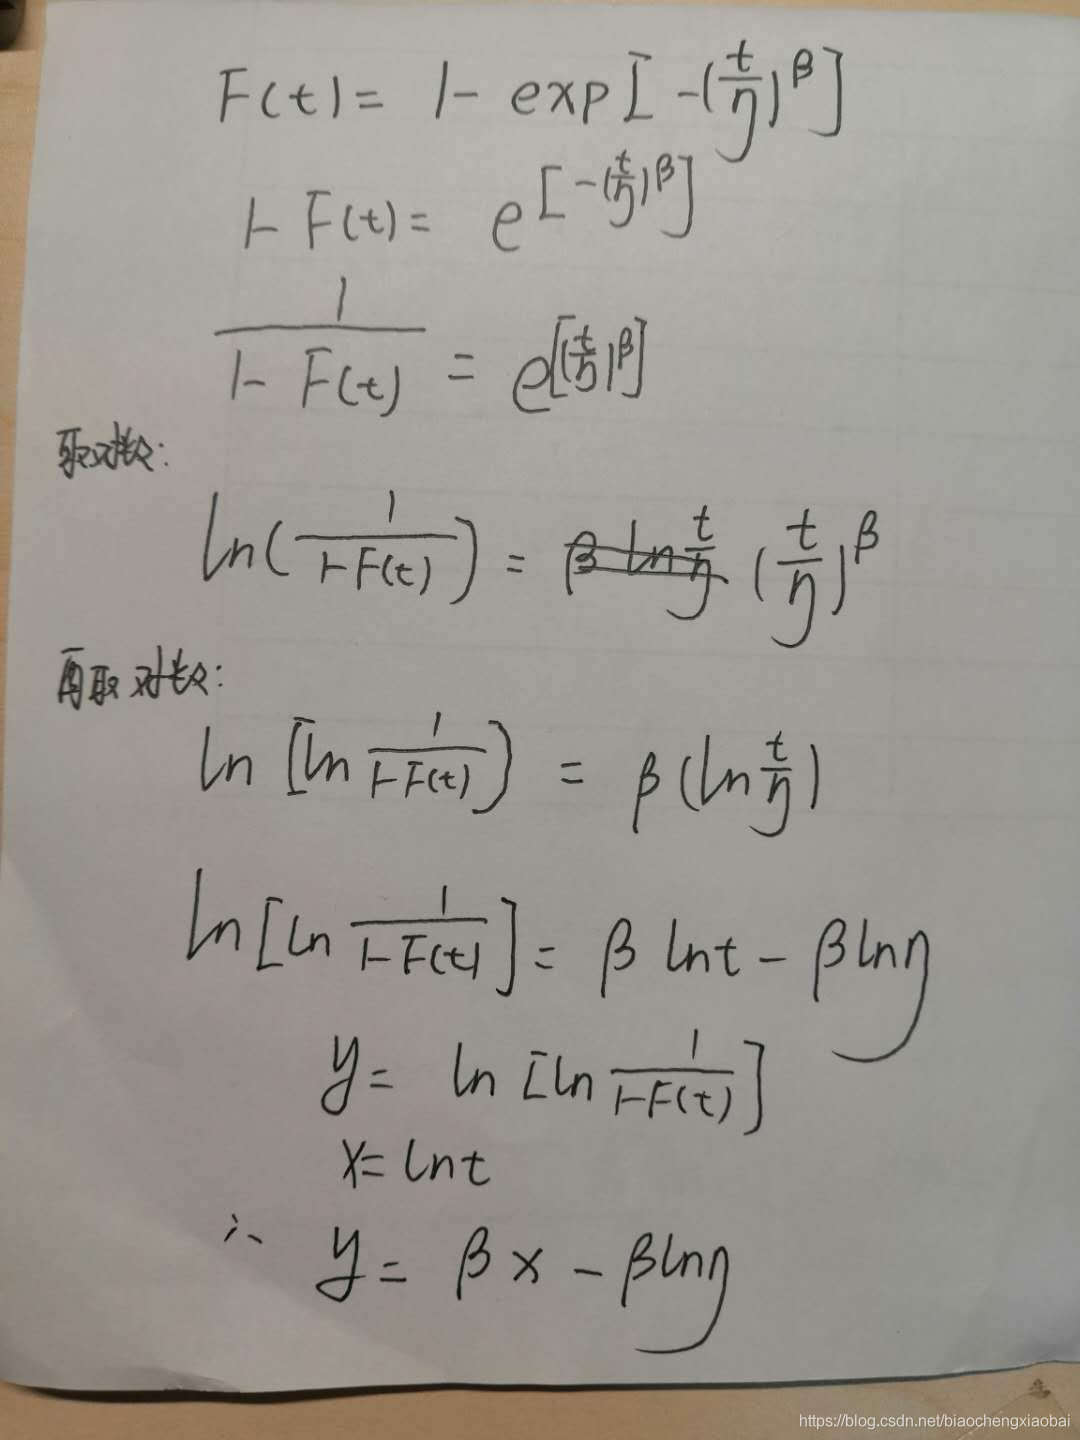 F(t) = 1 - exp[-(t/η)^β]
1 - F(t) = e^[-(t/η)^β]
1/(1 - F(t)) = e^[(t/η)^β]
取对数:
ln(1/(1-F(t))) = β ln t/η (t/η)^β
再取对数:
ln [ln 1/(1-F(t))) = β(ln t/η)
ln[ln 1/(1-F(t))] = β lnt - βlnη
y = ln [ln 1/(1-F(t))]
x = lnt
∴ y = βx - βlnη
https://blog.csdn.net/biaochengxiaobai